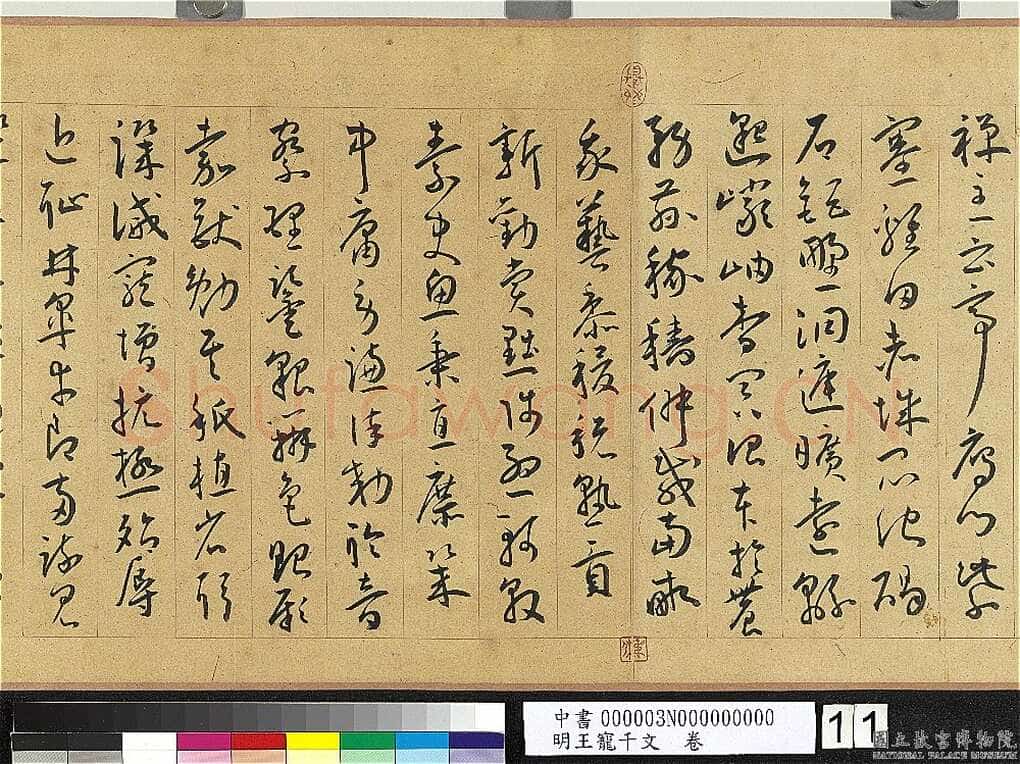 禪主云亭雁門紫
塞雞田赤城昆池碣
石鉅野洞庭曠遠緜
邈巖岫杳冥治本於農
務茲稼穡俶載南畝
我藝黍稷稅熟貢
新勸賞黜陟孟軻敦
素史魚秉直庶幾
中庸勞謙謹敕聆音
察理鑑貌辨色貽厥
嘉猷勉其祗植省躬
譏誡寵增抗極殆辱
近恥林皋幸即兩疏見
shufawang.CN
中書 000003N000000000
明王寵千文 卷
11
國立故宮博物院
NATIONAL PALACE MUSEUM